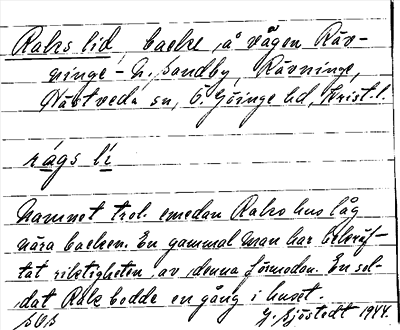 Raks lid, backe å vägen Räv-
ninge - N. Sandby, Rävninge,
Hästveda sn, Ö. Göinge hd, Krist. l.
rágs lí
Namnet trol. emedan Raks hus låg
nära backen. En gammal man har bekräf-
tat riktigheten av denna förmodan. En sol-
dat Rak bodde en gång i huset.
J. Sjöstedt 1944.